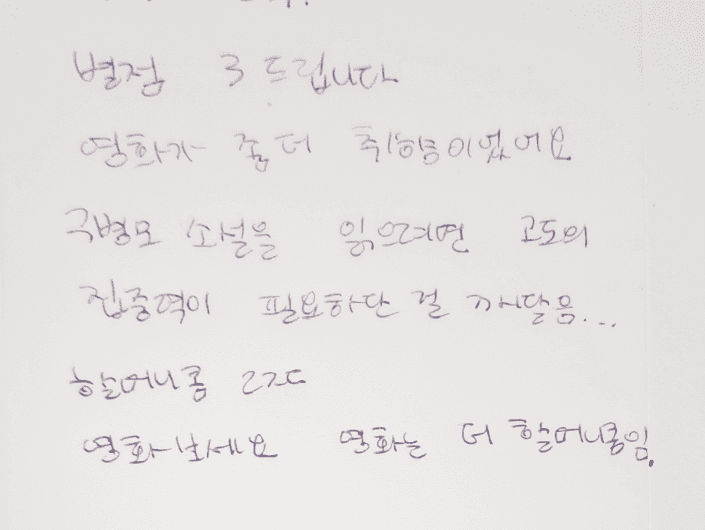 별점 3 드립니다
영화가 좀 더 취향이었어요
구병모 소설을 읽으려면 고도의
집중력이 필요하단 걸 깨달음...
할머니콩
영화보세요 영화는 더 할머니콩임.